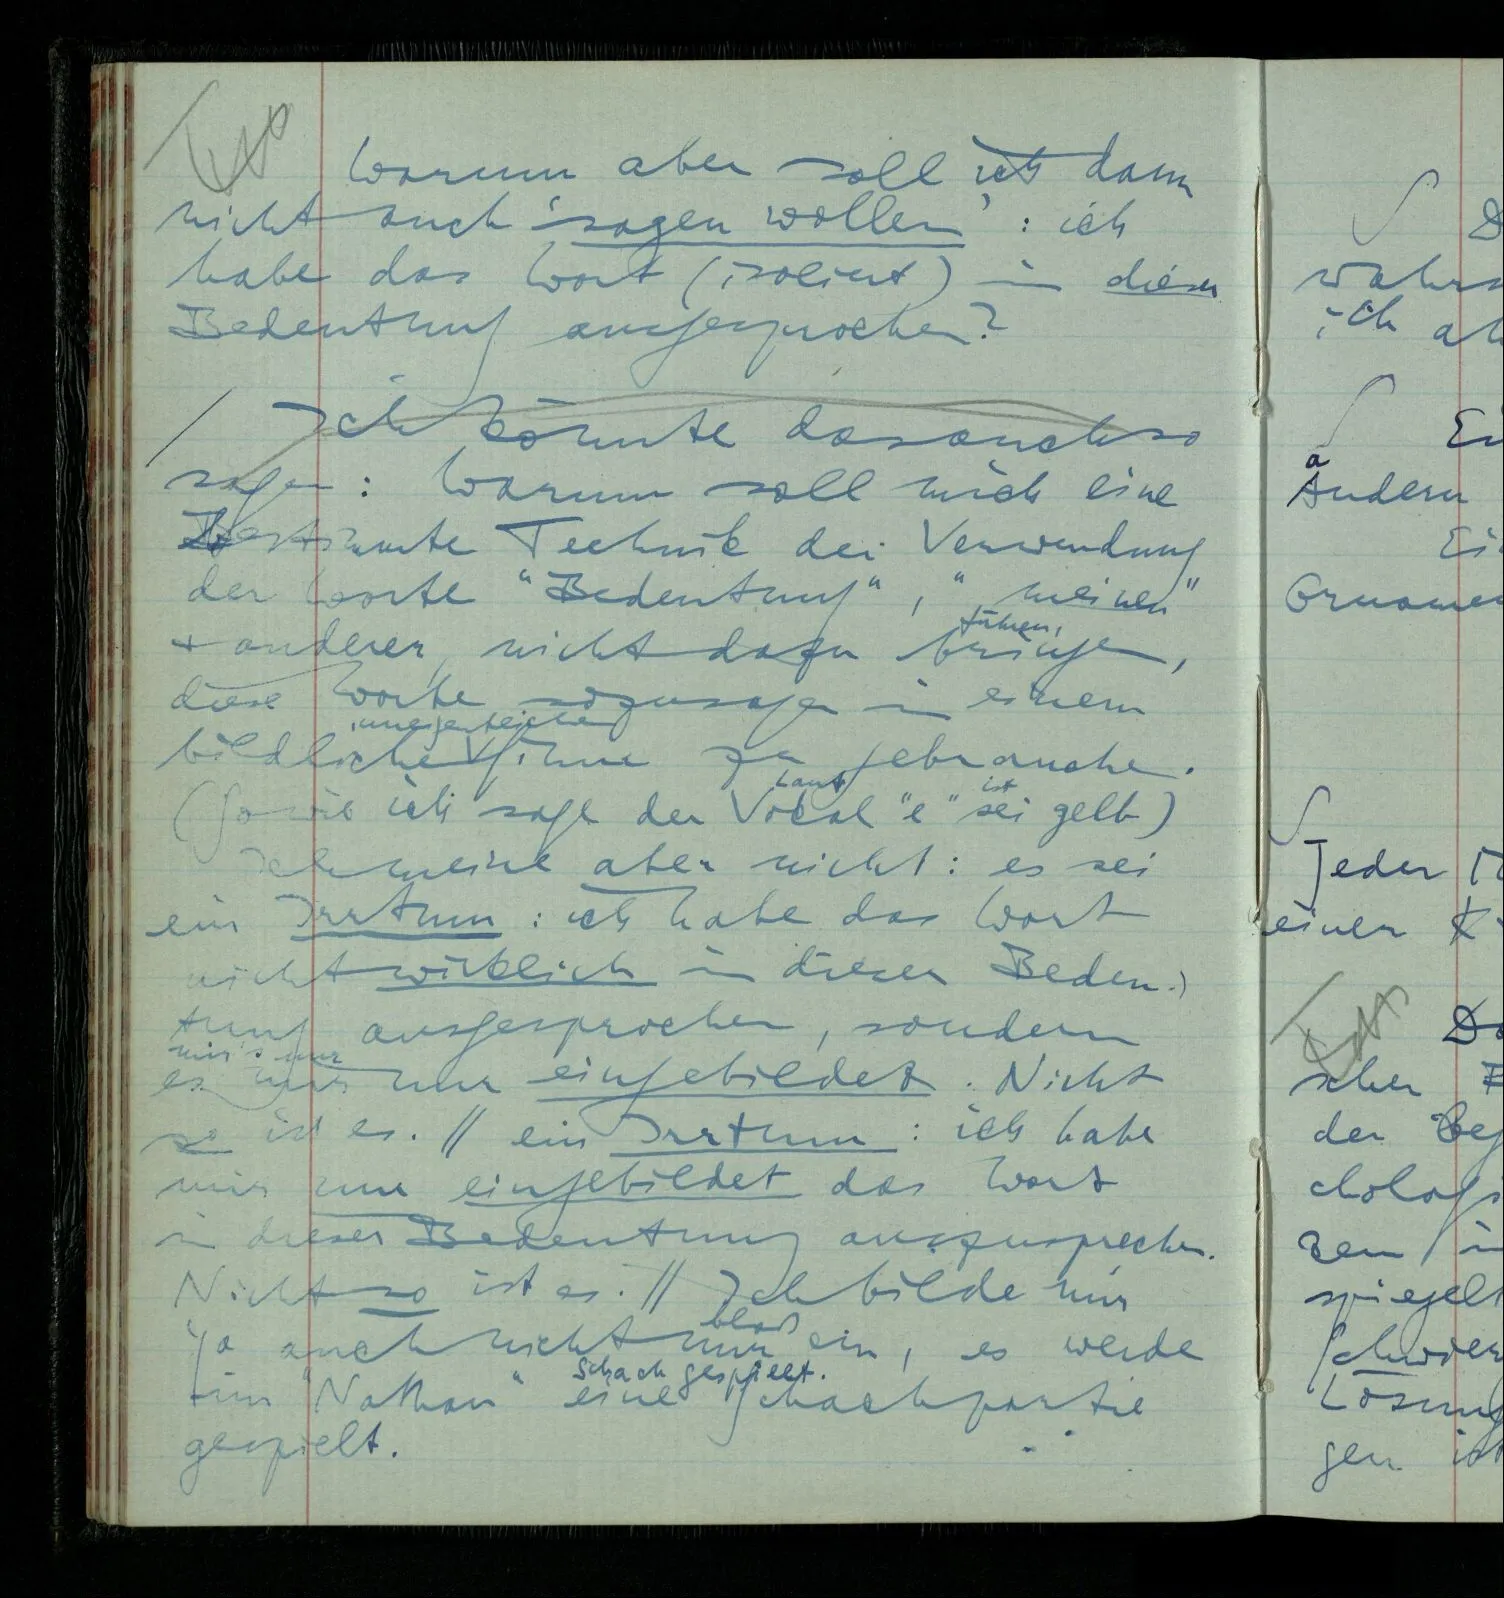 Warum aber soll ich dann
nicht auch 'sagen wollen': ich
habe das Wort (isoliert) in dieser
Bedeutung ausgesprochen?
/ Ich könnte das auch so
sagen: Warum soll mich eine
Bestimmte Technik der Verwendung
der Worte "Bedeutung", "meinen"
führen,
+ anderer, nicht dazu bringen,
diese Worte sozusagen in einem
uneigentlichen
bildlichen Sinne zu gebrauchen.
Laut ist
(So wie ich sage der Vocal "e" sei gelb)
Ich meine aber nicht: es sei
ein Irrtum: ich habe das Wort
nicht wirklich in dieser Bedeu-
tung ausgesprochen, sondern
mir's nur
es mir nur eingebildet. Nicht
so ist es. // ein Irrtum: ich habe
mir nur eingebildet das Wort
in dieser Bedeutung auszusprechen.
Nicht so ist es. // Ich bilde mir
bloß
ja auch nicht nur ein, es werde
Schach gespielt.
im "Nathan" eine Schachpartie
gespielt.
∫ D
wahrs
ich al
∫ Ei
a
Andern
Ei
Orname
∫
Jeder
einer K
schen B
der Beg
cholog
zen in
spiegelt
Schwier
Lösung
gen ist